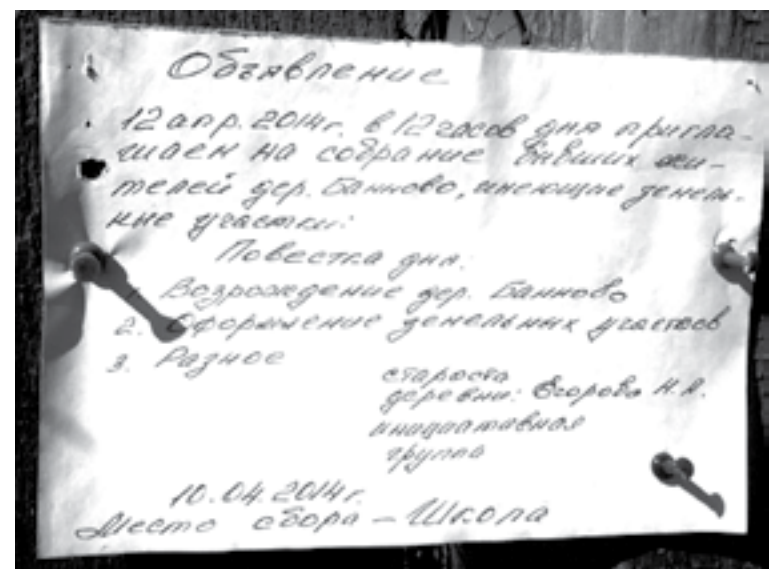 Объявление
12 апр. 2014г. в 12 часов дня пригла-
шаем на собрание бывших жи-
телей дер. Банново, имеющие земель-
ные участки:
Повестка дня.
1. Возрождение дер. Банново
2. Оформление земельных участков
3. Разное
староста
деревни: Егорова Н.А.
инициативная
группа
10.04.2014г.
Место сбора – Школа